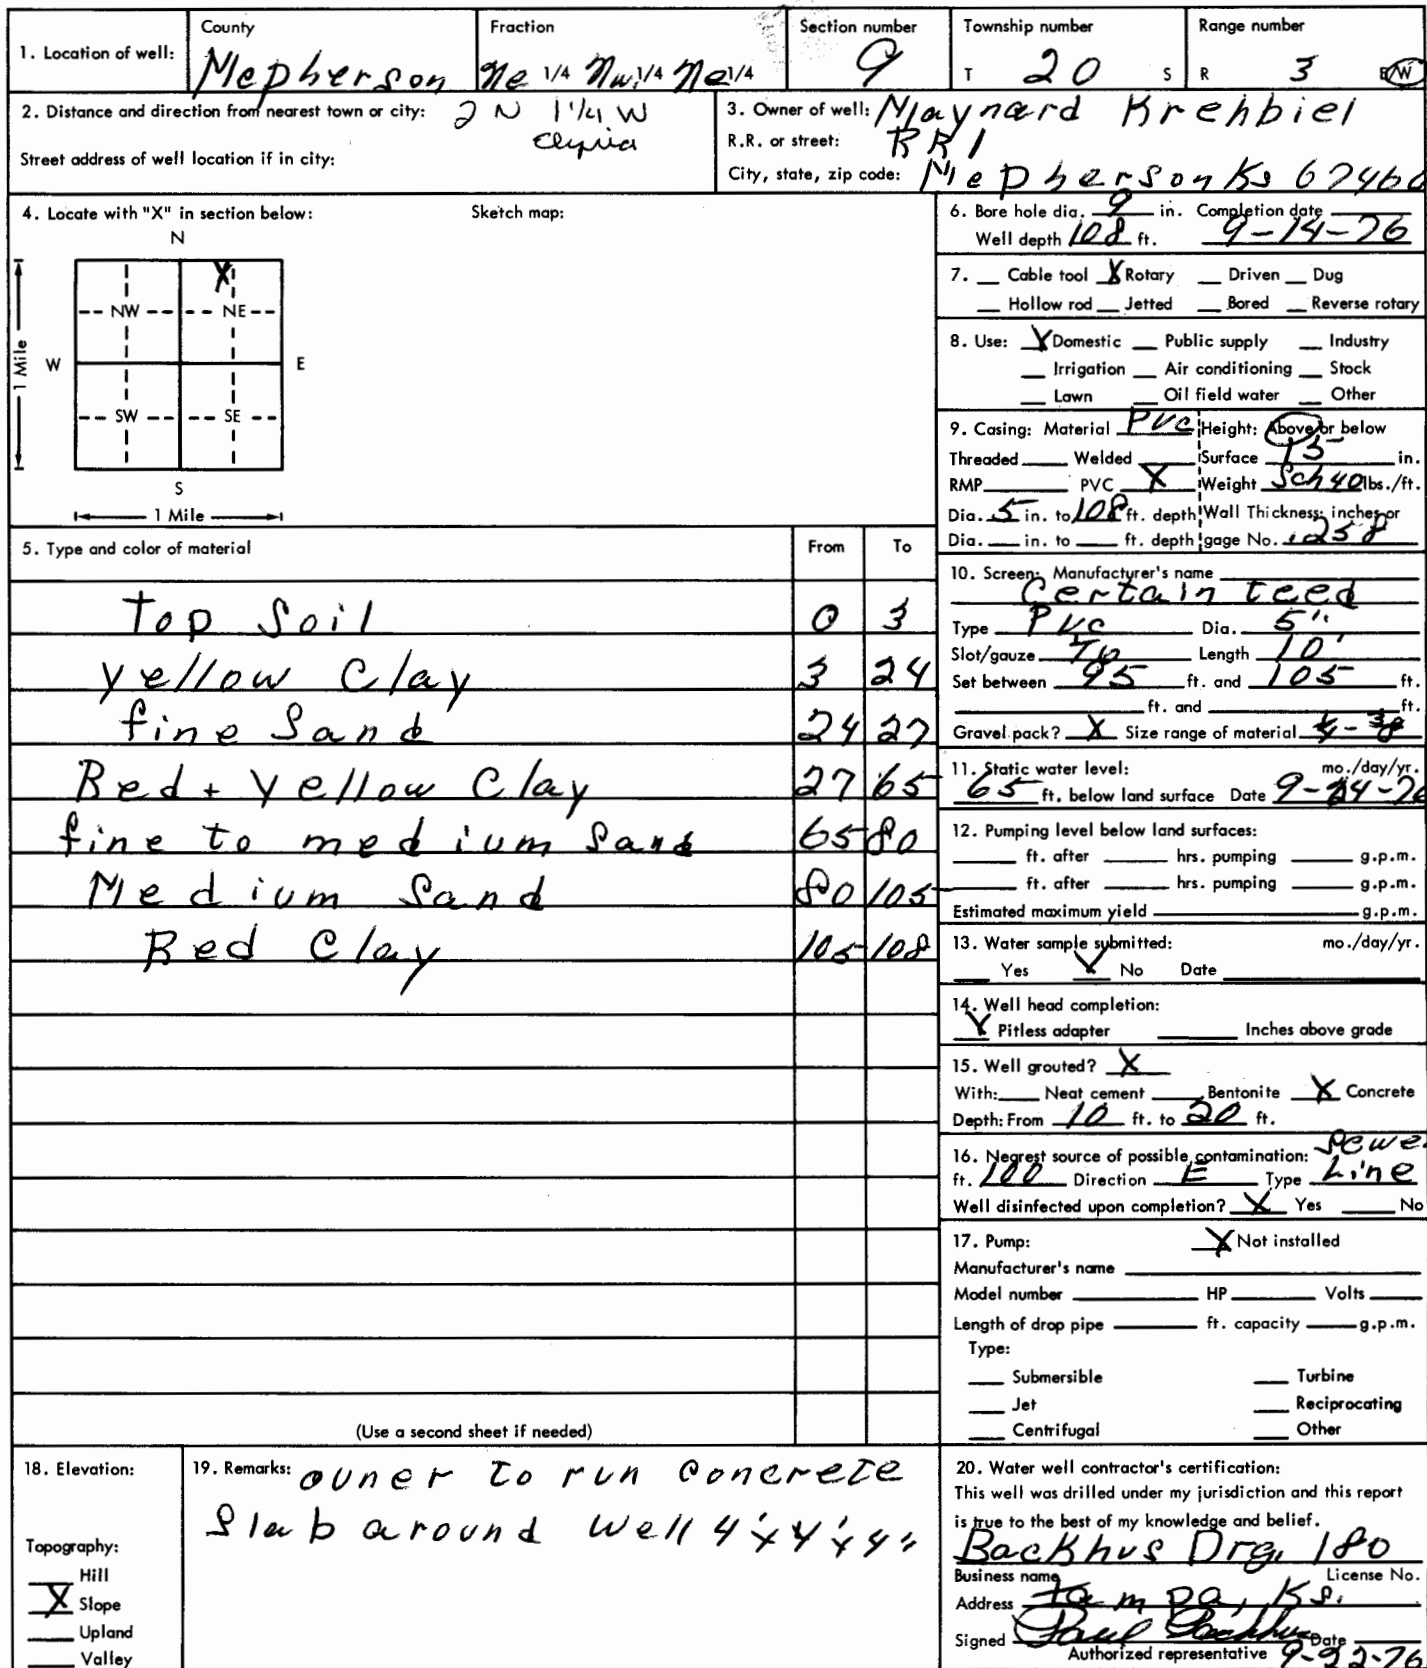 County Fraction Section number Township number Range number
1. Location of well: Mcpherson Ne 1/4 Nw 1/4 Ne 1/4 9 T 20 S R 3 E/W
2. Distance and direction from nearest town or city: 2 N 1 1/4 W
Elyria
Street address of well location if in city:
3. Owner of well: Maynard Krehbiel
R.R. or street: RR1
City, state, zip code: Mcpherson Ks 67460
4. Locate with "X" in section below: Sketch map:
N
X
NW NE
W E
1 Mile
SW SE
S
1 Mile
5. Type and color of material From To
Top Soil 0 3
Yellow Clay 3 24
fine Sand 24 27
Red + Yellow Clay 27 65
fine to medium Sand 65 80
Medium Sand 80 105
Red Clay 105 108
(Use a second sheet if needed)
6. Bore hole dia. 9 in. Completion date
Well depth 108 ft. 9-14-76
7. __ Cable tool X Rotary __ Driven __ Dug
__ Hollow rod __ Jetted __ Bored __ Reverse rotary
8. Use: X Domestic __ Public supply __ Industry
__ Irrigation __ Air conditioning __ Stock
__ Lawn __ Oil field water __ Other
9. Casing: Material PVC Height: Above or below
Threaded ____ Welded ____ Surface 15 in.
RMP ____ PVC X Weight Sch 40 lbs./ft.
Dia. 5 in. to 108 ft. depth Wall Thickness: inches or
Dia. __ in. to __ ft. depth gage No. .258
10. Screen: Manufacturer's name
Certain teed
Type PVC Dia. 5"
Slot/gauze Length 10'
Set between 95 ft. and 105 ft.
____ ft. and ____ ft.
Gravel pack? X Size range of material
11. Static water level: mo./day/yr.
65 ft. below land surface Date 9-14-76
12. Pumping level below land surfaces:
____ ft. after ____ hrs. pumping ____ g.p.m.
____ ft. after ____ hrs. pumping ____ g.p.m.
Estimated maximum yield ____ g.p.m.
13. Water sample submitted: mo./day/yr.
__ Yes X No Date ____
14. Well head completion:
X Pitless adapter ____ Inches above grade
15. Well grouted? X
With: __ Neat cement __ Bentonite X Concrete
Depth: From 10 ft. to 20 ft.
16. Nearest source of possible contamination: Sewe
ft. 100 Direction E Type Line
Well disinfected upon completion? X Yes ____ No
17. Pump: X Not installed
Manufacturer's name ____
Model number ____ HP ____ Volts ____
Length of drop pipe ____ ft. capacity ____ g.p.m.
Type:
__ Submersible __ Turbine
__ Jet __ Reciprocating
__ Centrifugal __ Other
18. Elevation:
Topography:
__ Hill
X Slope
__ Upland
__ Valley
19. Remarks: owner to run concrete
Slab around Well 4'x4'x4"
20. Water well contractor's certification:
This well was drilled under my jurisdiction and this report
is true to the best of my knowledge and belief.
Backhus Drg. 180
Business name License No.
Address Tampa, Ks.
Signed Paul Backhus Date
Authorized representative 9-22-76